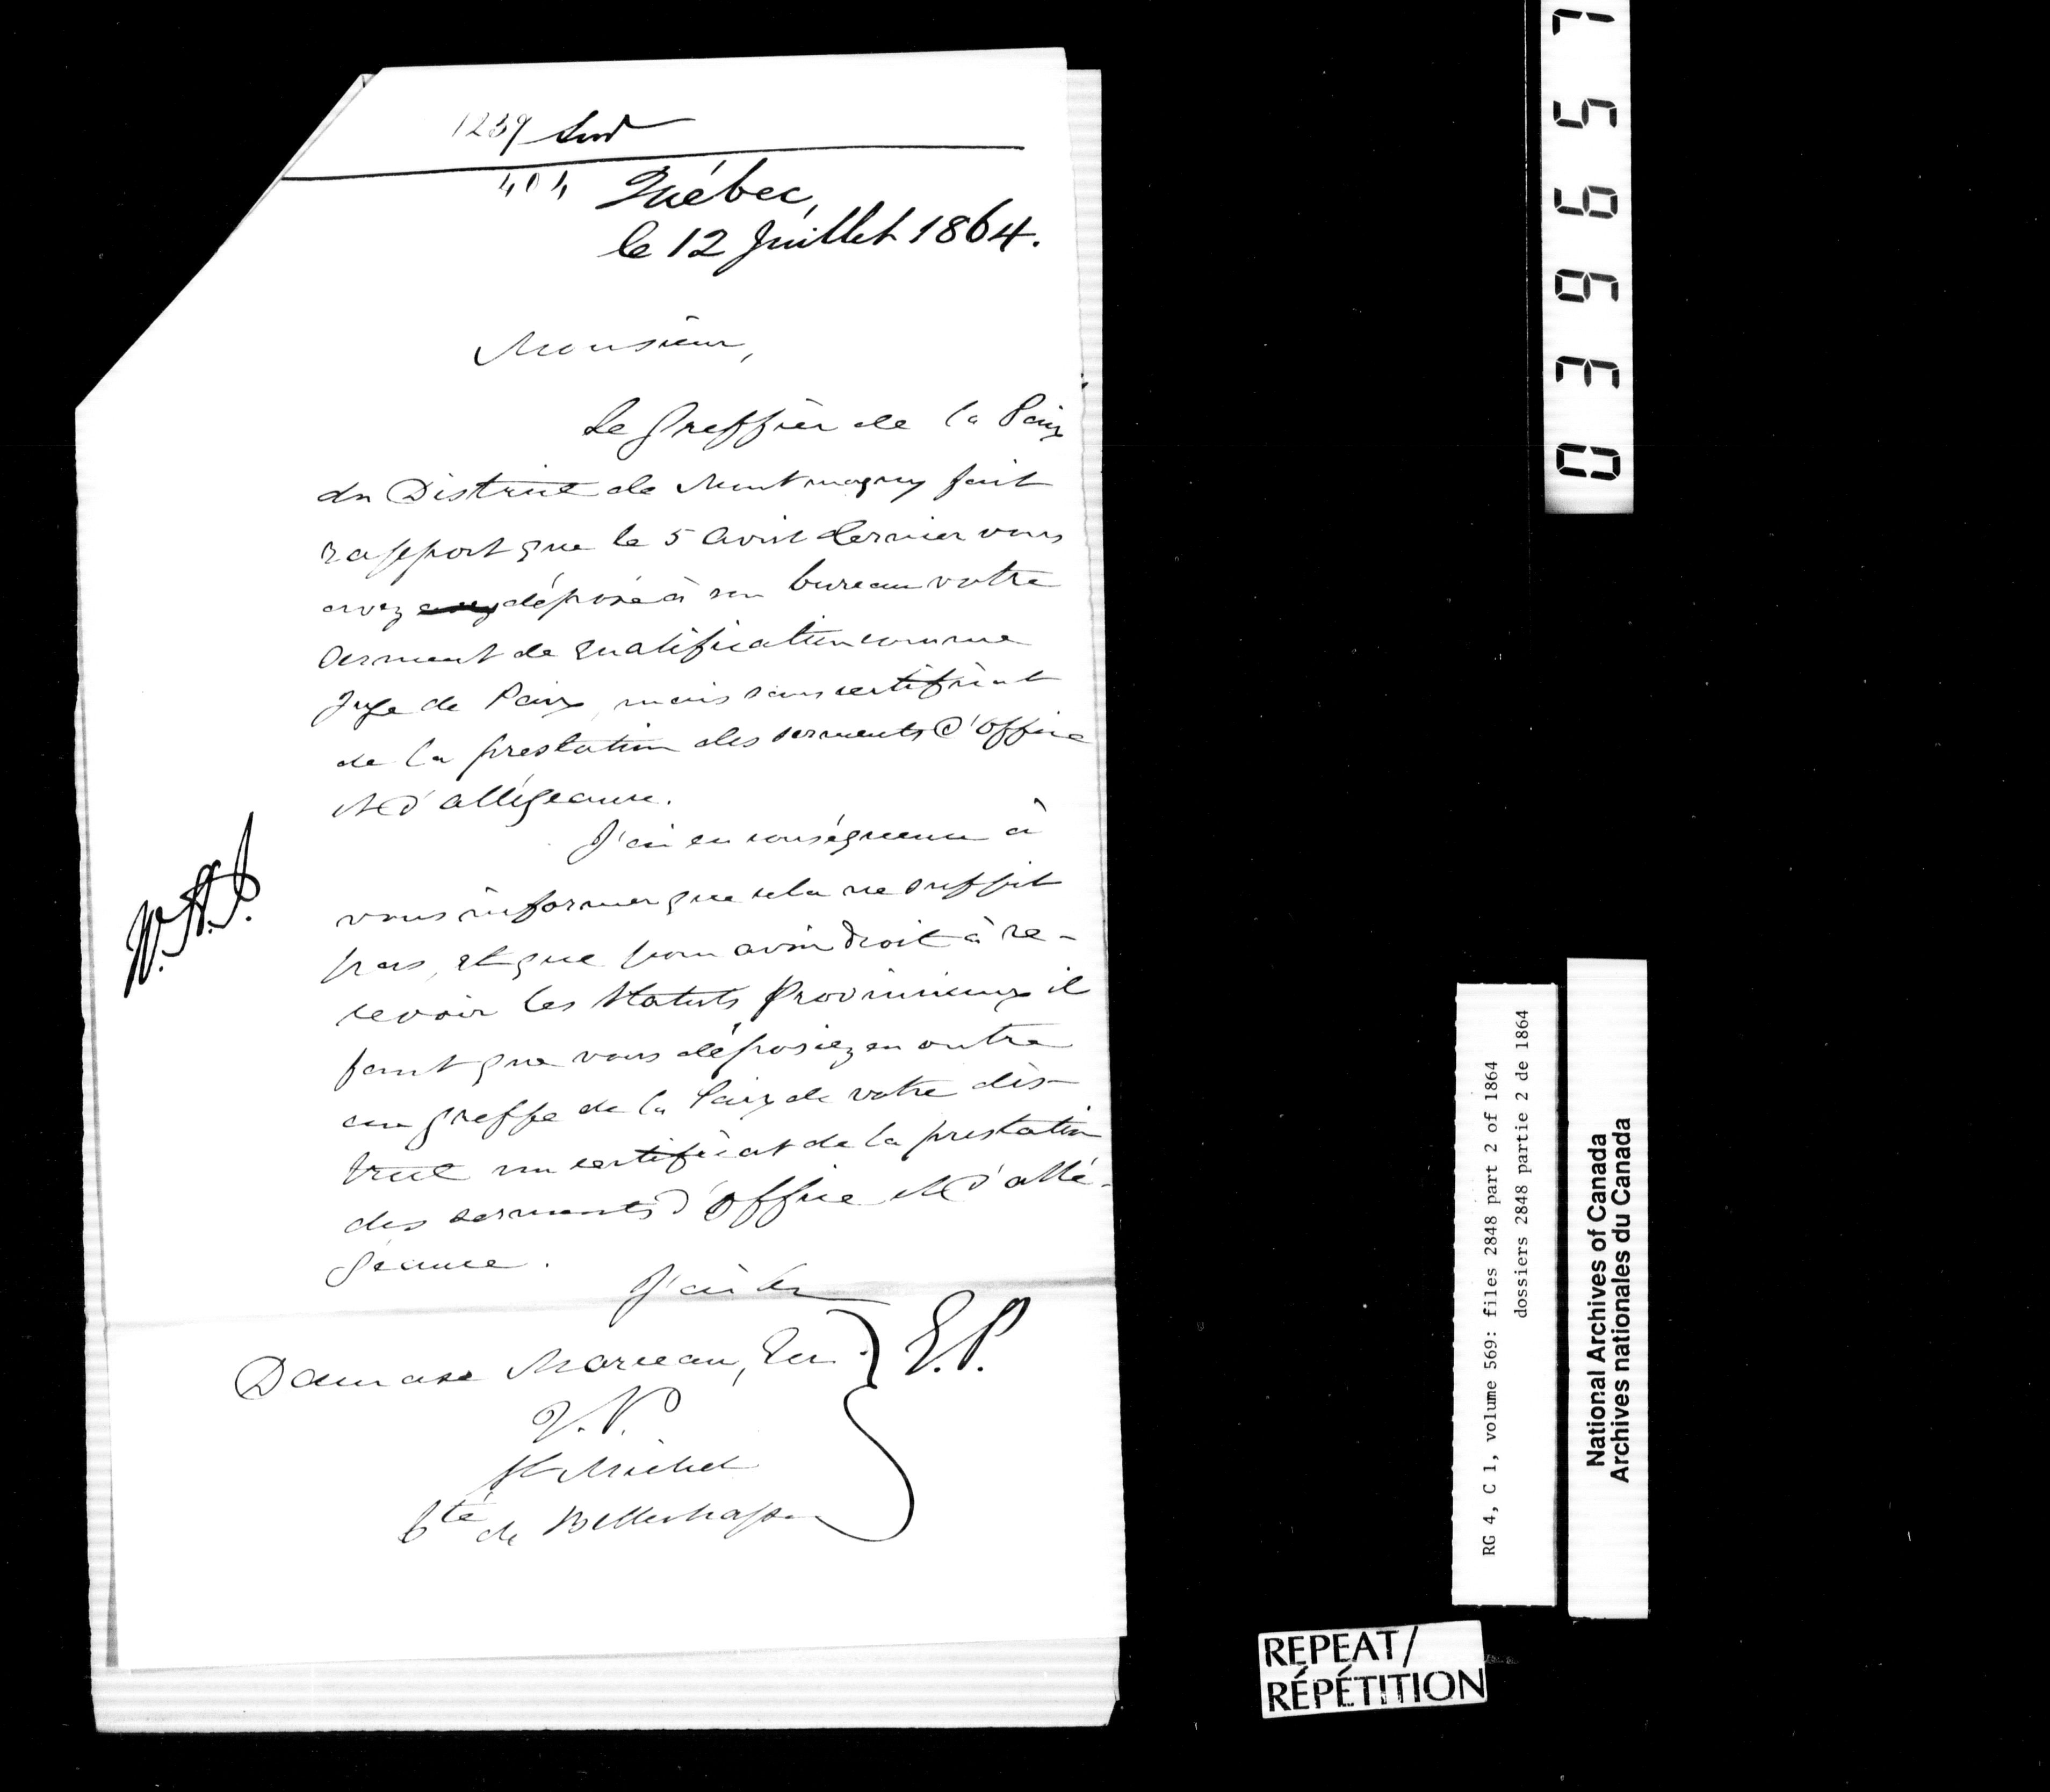 1239 Sud
404 Québec,
le 12 Juillet 1864.
Monsieur,
Le Greffier de la Paix
du District de Montmagny fait
rapport que le 5 Avril dernier vous
avez déposé à son bureau votre
serment de qualification comme
Juge de Paix, mais sans certificat
de la prestation des serments d'office
et d'allégeance.
J'ai en conséquence à
vous informer que cela ne suffit
pas, et que pour avoir droit à re-
cevoir les Statuts Provinciaux il
faut que vous déposiez en outre
au greffe de la Paix de votre dis-
trict un certificat de la prestation
des serments d'office et d'allé-
geance.
J'ai &c
W.H.J.
Damase Morneau, Ecr.
J.P.
St Michel
Cté de Bellechasse
E.P.
039657
RG 4, C 1, volume 569: files 2848 part 2 of 1864
dossiers 2848 partie 2 de 1864
National Archives of Canada
Archives nationales du Canada
REPEAT/
RÉPÉTITION